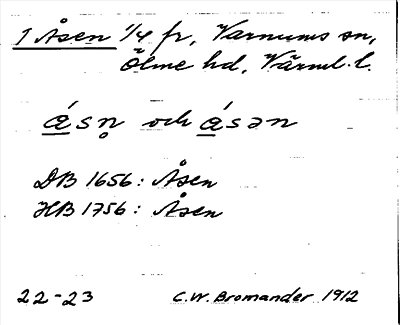 1 Åsen 1/4 fr, Varnums sn,
Ölme hd, Värml. l.
á̲sn̥ och á̲sən
DB 1656: Åsen
HB 1756: Åsen
22-23 C.W. Bromander 1912